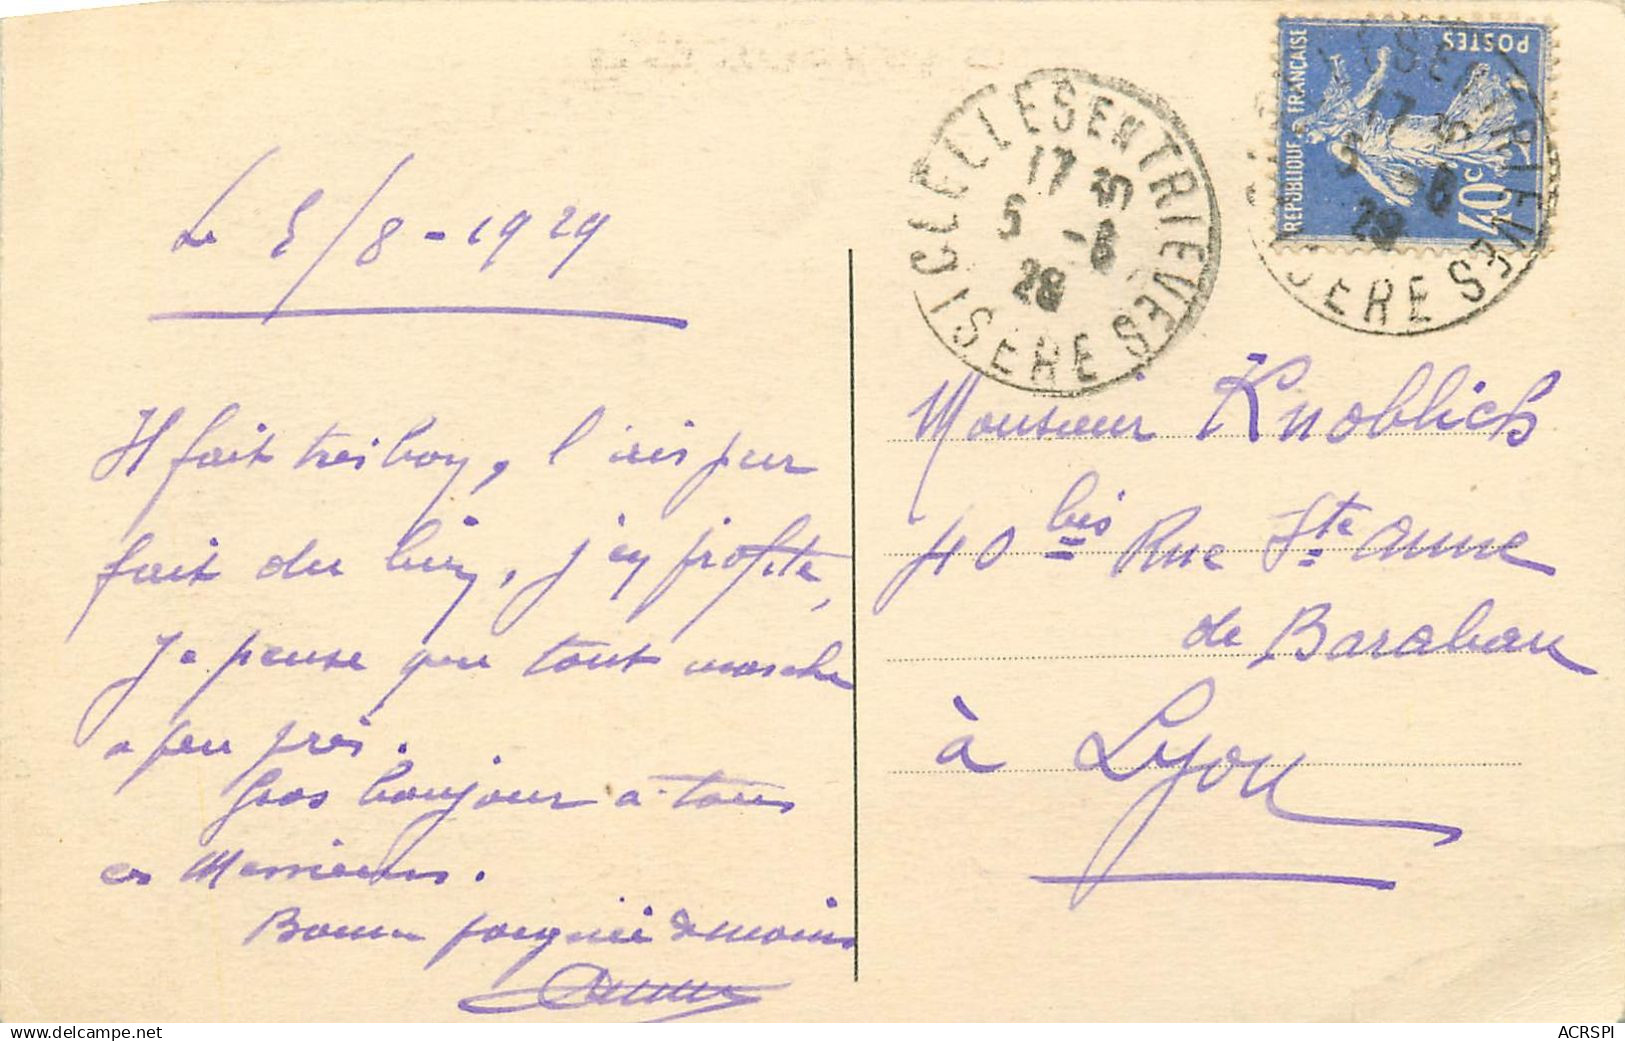 Le 5/8-1929
Il fait tres bon, l'air pur
fait du bien, j'en profite,
Je pense que tout marche
a peu près.
Gros bonjour a tous
ces Messieurs.
Bonne poignée de mains
CLELLES EN TRIEVES
17 30
5 -8
29
ISERE
REPUBLIQUE FRANÇAISE
POSTES
40c
Monsieur Knoblich
40 bis Rue Ste Anne
de Baraban
à Lyon
www.delcampe.net
ACRSPI